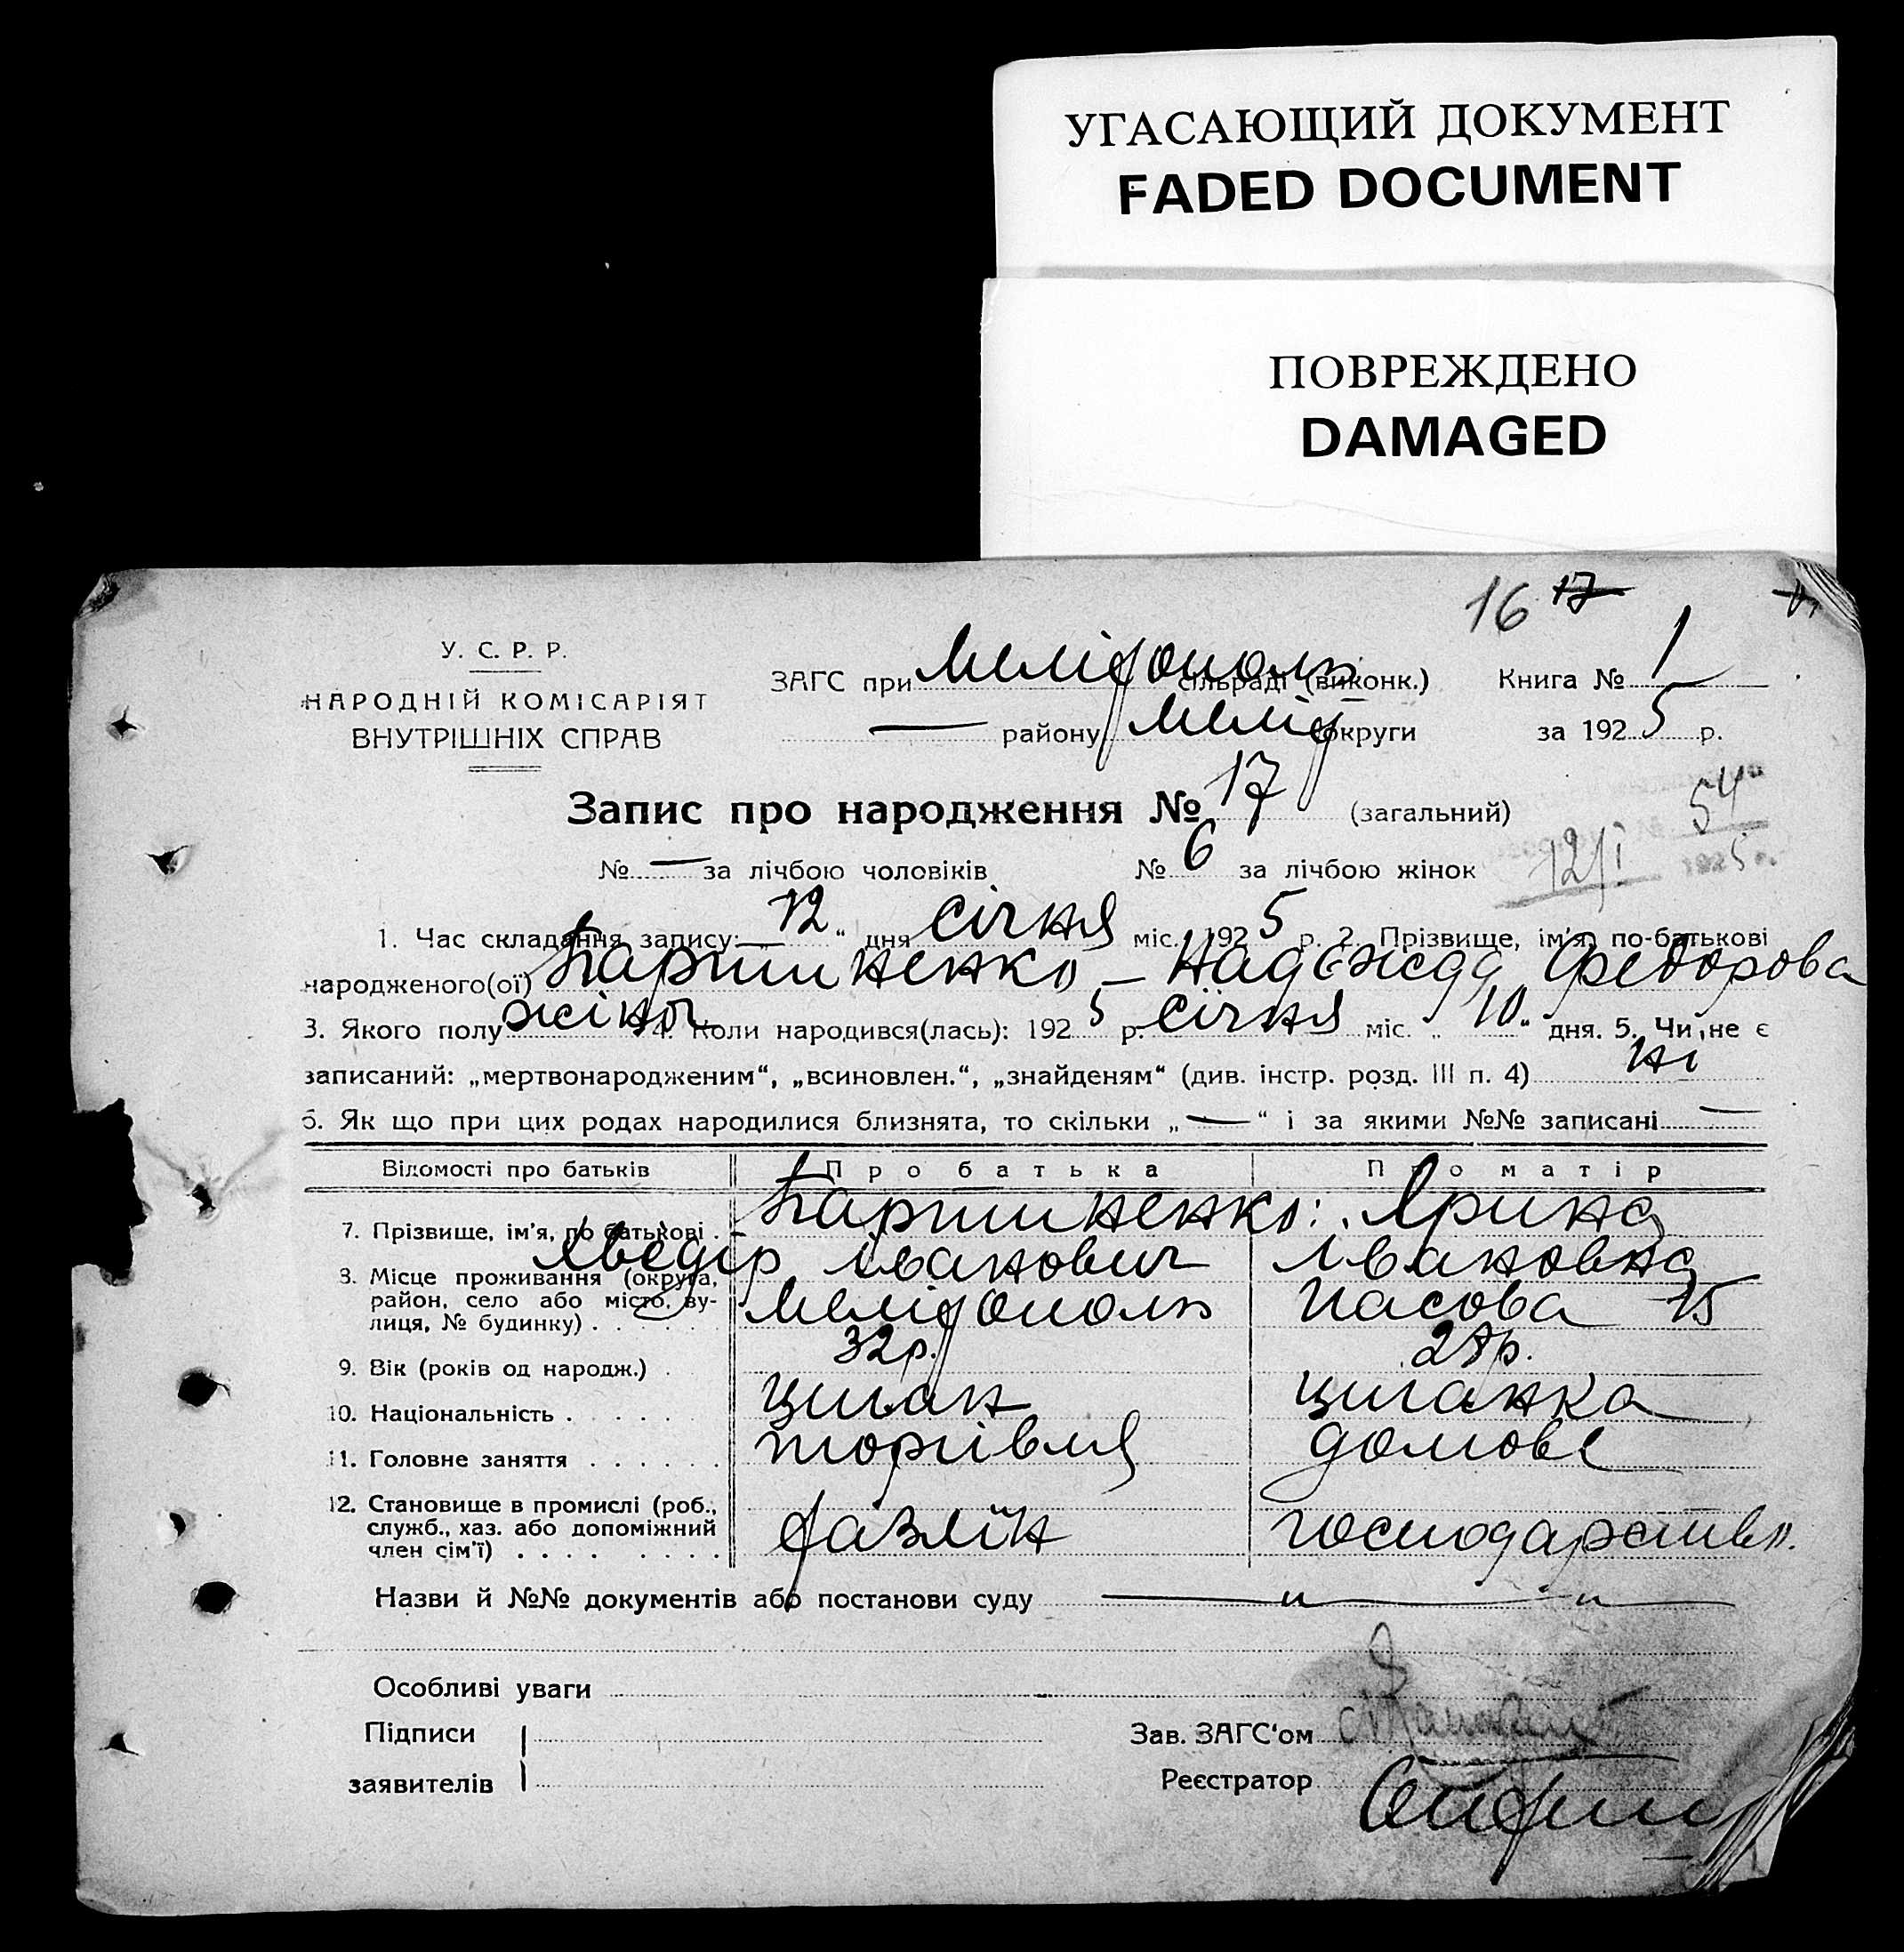 УГАСАЮЩИЙ ДОКУМЕНТ
FADED DOCUMENT
ПОВРЕЖДЕНО
DAMAGED
16 17
У. С. Р. Р.
НАРОДНІЙ КОМІСАРІЯТ
ВНУТРІШНІХ СПРАВ
ЗАГС при Мелітополь сільраді (виконк.) Книга № 1
— району Меліт округи за 1925 р.
Запис про народження № 17 (загальний)
54
№ — за лічбою чоловіків № 6 за лічбою жінок
12/I 5
1. Час складання запису: „12“ дня січня міс. 1925 р. 2. Прізвище, ім'я, по-батькові
народженого(ої) Пархименко — Надєжда Федорова
3. Якого полу жіноч 4. Коли народився(лась): 1925 р. січня міс. „10“ дня. 5. Чи не є
записаний: „мертвонародженим“, „всиновлен.“, „знайденям“ (див. інстр. розд. III п. 4) ні
6. Як що при цих родах народилися близнята, то скільки „—“ і за якими №№ записані —
Відомості про батьків Про батька Про матір
7. Прізвище, ім'я, по батькові . Пархименко: Ярина
Хведір Іванович Івановна
8. Місце проживання (округа, район, село або місто, ву-
лиця, № будинку) . . . . . Мелітополь 15
9. Вік (років од народж.) . 32р. 28р.
10. Національність . . . . . . циган циганка
11. Головне заняття . . . . . . торгівля домове
12. Становище в промислі (роб.,
служб., хаз. або допоміжний
член сім'ї) . . . . . . . . хазяїн господарств.
Назви й №№ документів або постанови суду — „ — „ —
Особливі уваги
Підписи
заявителів
Зав. ЗАГС'ом
Реєстратор